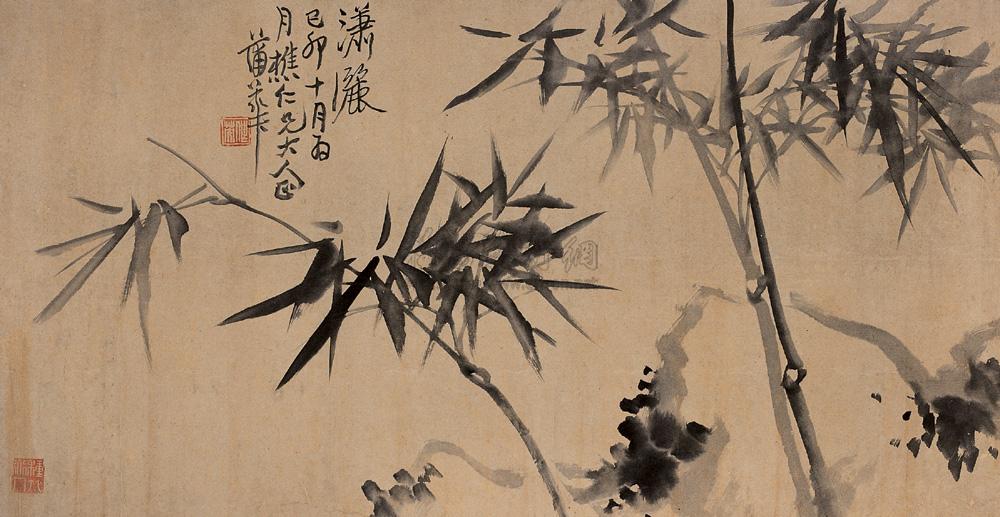 瀟灑
己卯十月為
月樵仁兄大人正
蒲華